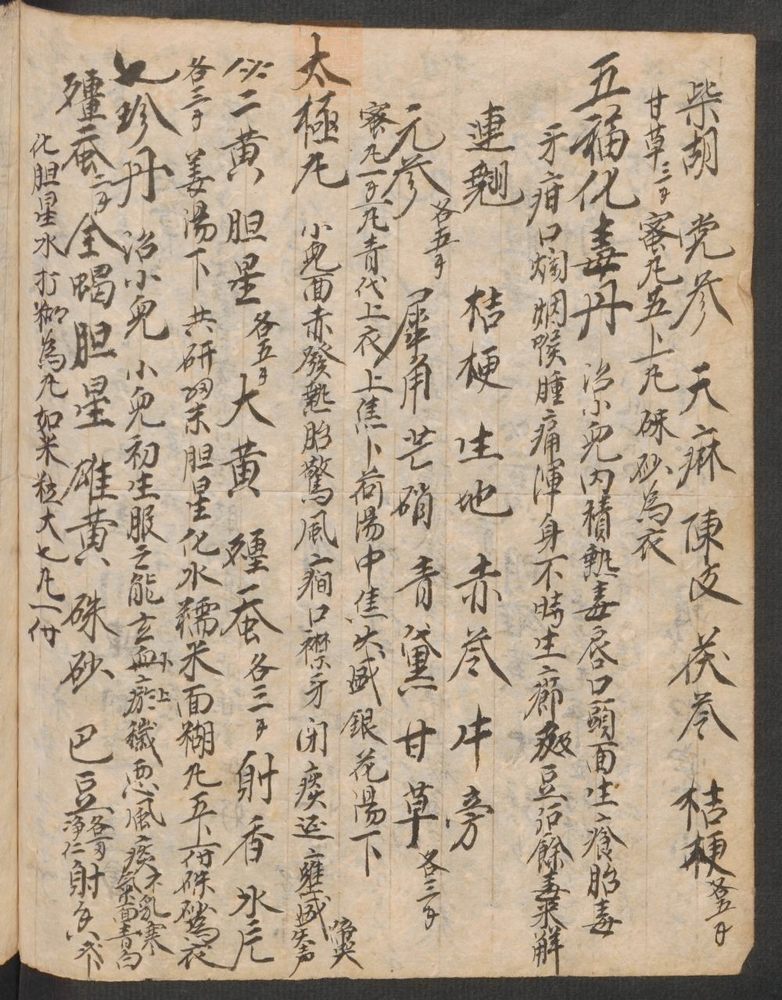 柴胡 党参 天麻 陳皮 茯苓 桔梗各五才
甘草三才 蜜凡五卜凡 硃砂為衣
五福化毒丹 治小兒內積熱毒唇口頭面生瘡胎毒
牙疳口 喉腫痛渾身不時生癤 豆後餘毒未解
連翹 桔梗 生地 赤苓 牛旁
元参各五才 犀角 芒硝 青黛 甘草各三才
蜜凡一才凡青代上衣 上焦卜荷湯中焦火盛銀花湯下
太極凡 小兒面赤發熱胎驚風癇口襟牙閉痰涎壅盛 失声 啼哭
二黄 胆星各五才 大黄 殭蚕各三才 射香 氷
各三才 姜湯下 共研 末胆星化水糯米面糊凡五卜付硃砂為衣
七珍丹 治小兒 小兒初生服之能去血下瘀上穢惡風痰不乳寒 面青白
殭蚕二才 全蝎 胆星 雄黄 硃砂 巴豆各一才净仁 射
化胆星水打糊為凡如米粒大七凡一付